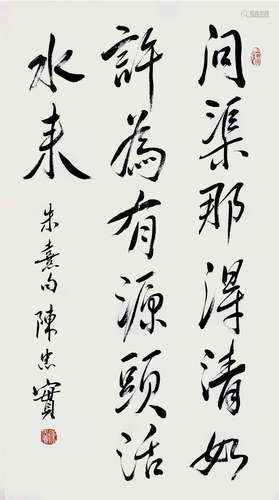 問渠那得清如
許為有源頭活
水来
朱熹句陳忠實